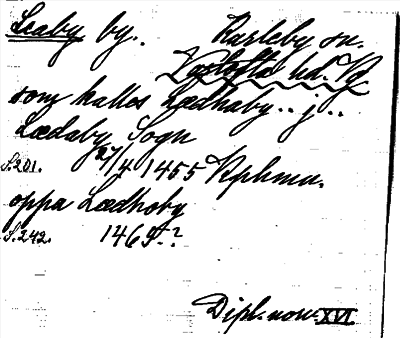 Leaby by. Karleby sn.
Vartofta hd. Vg
som kallas Lædhaby.. j..
Lædaby Sogn
S. 201. 27/4 1455 Kphmn.
oppa Lædhoby
S. 242. 1469.?
Dipl. norv. XVI